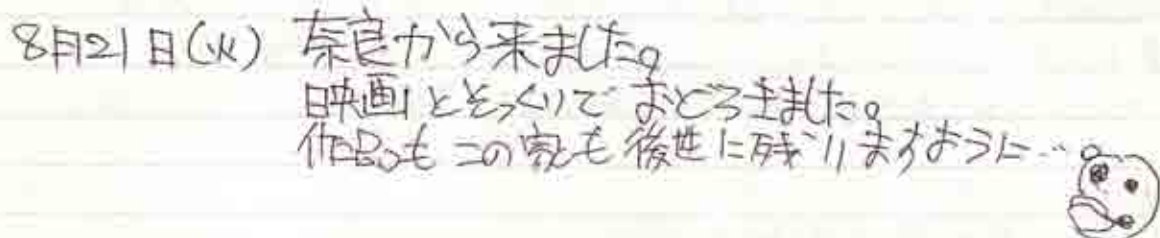 8月21日(火) 奈良から来ました。
映画とそっくりでおどろきました。
作品もこの家も後世に残りますように…。